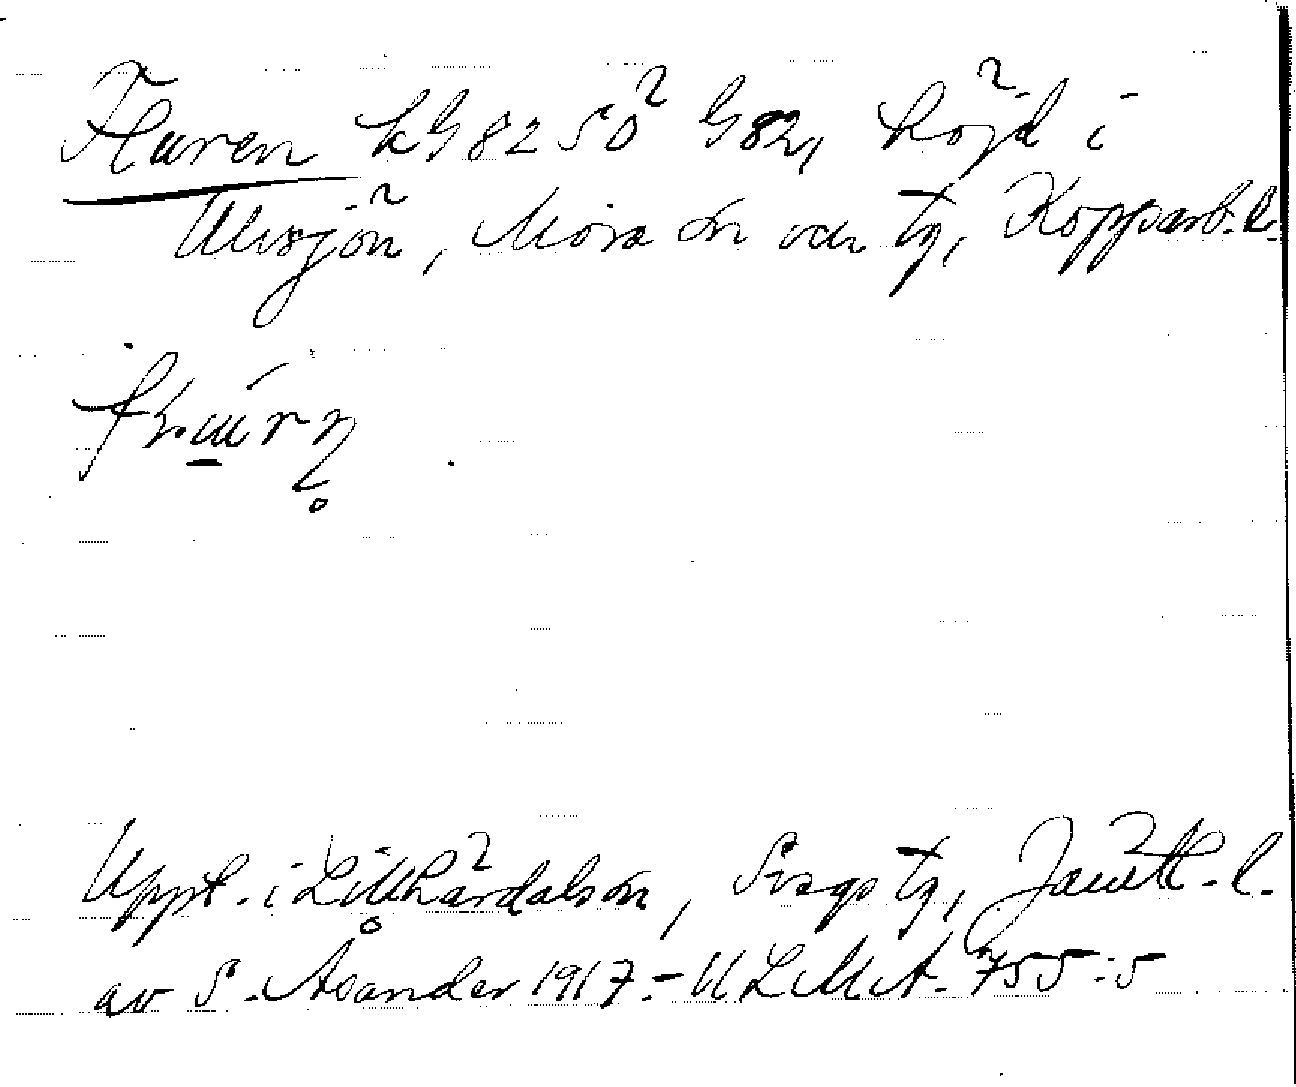 Fluren kg 82 SO² G 82, höjd i
Ulvsjön, Mora sn och tg, Kopparb. l.
Uppt. i Lillhärdals sn, Svegs tg, Jämtl. l.
av S. Åsander 1917. - ULMA. 755:5